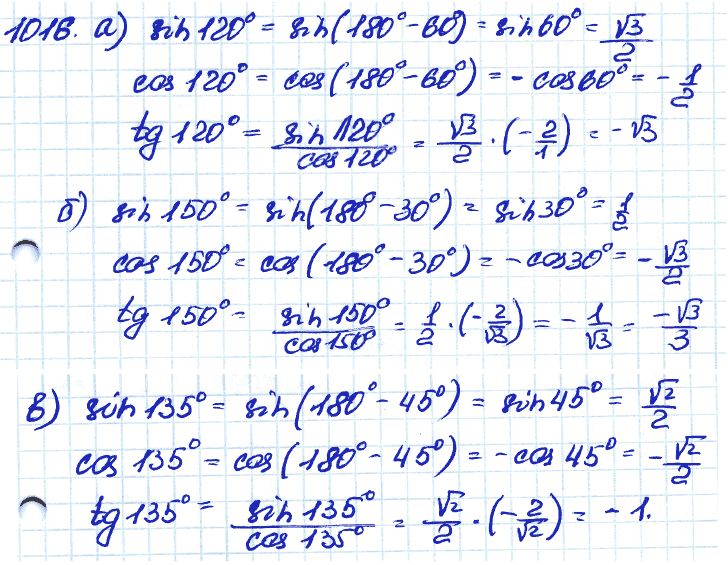 1016. а) sin 120° = sin(180° - 60°) = sin 60° = √3/2
cos 120° = cos(180° - 60°) = - cos 60° = - 1/2
tg 120° = sin 120°/cos 120° = √3/2 · (- 2/1) = - √3
б) sin 150° = sin(180° - 30°) = sin 30° = 1/2
cos 150° = cos(180° - 30°) = - cos 30° = - √3/2
tg 150° - sin 150°/cos 150° = 1/2 · (- 2/√3) = - 1/√3 = -√3/3
в) sin 135° = sin(180° - 45°) = sin 45° = √2/2
cos 135° = cos(180° - 45°) = - cos 45° = - √2/2
tg 135° = sin 135°/cos 135° = √2/2 · (- 2/√2) = - 1.